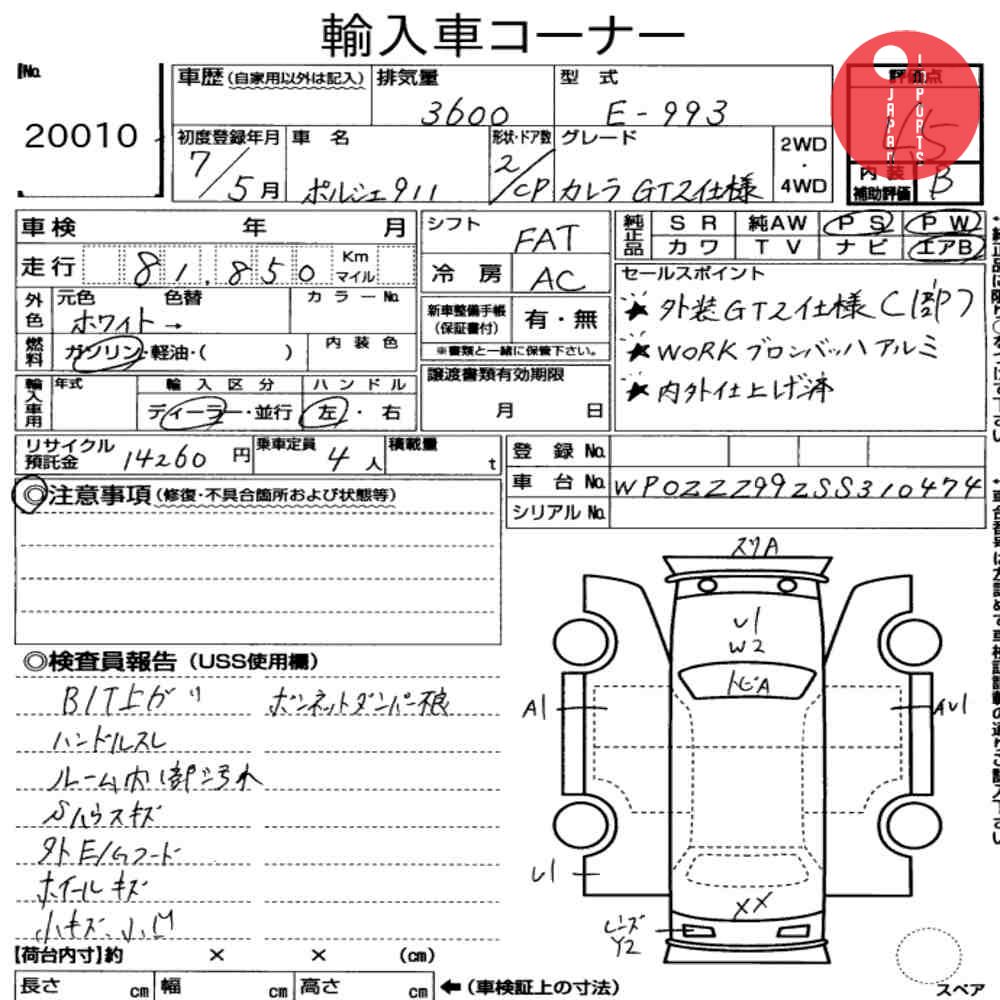 輸入車コーナー
No.
20010
車歴(自家用以外は記入)
排気量
3600
型 式
E-993
評価点
4.5
JAPAN IMPORTS
初度登録年月
7/5月
車 名
ポルシェ911
形状・ドア数
2/CP
グレード
カレラ GT2仕様
2WD
・
4WD
内装
補助評価
B
車検 年 月
走行 81,850 Km
マイル
外色
元色 色替
ホワイト→
カラーNo.
燃料
ガソリン・軽油・( )
内装色
輸入車用
年式
輸入区分
ディーラー・並行
ハンドル
左・右
シフト
FAT
冷房
AC
新車整備手帳
(保証書付)
有・無
※書類と一緒に保管下さい。
譲渡書類有効期限
月 日
純正品
SR 純AW PS PW
カワ TV ナビ エアB
セールスポイント
★外装GT2仕様
★WORKブロンバッハアルミ
★内外仕上げ済
リサイクル
預託金
14260円
乗車定員
4人
積載量
t
登録No.
車台No. WP0ZZZ99ZSS310474
シリアルNo.
◎注意事項(修復・不具合箇所および状態等)
◎検査員報告(USS使用欄)
B/T上ガリ
ボンネットダンパー不良
ハンドルスレ
ルーム内部汚れ
ホイールキズ
小キズ、小凹
スリA
U1
W2
トビA
A1
AU1
U1
XX
レンズ
Y2
【荷台内寸】約 × × (cm)
長さ cm 幅 cm 高さ cm ←(車検証上の寸法)
スペア